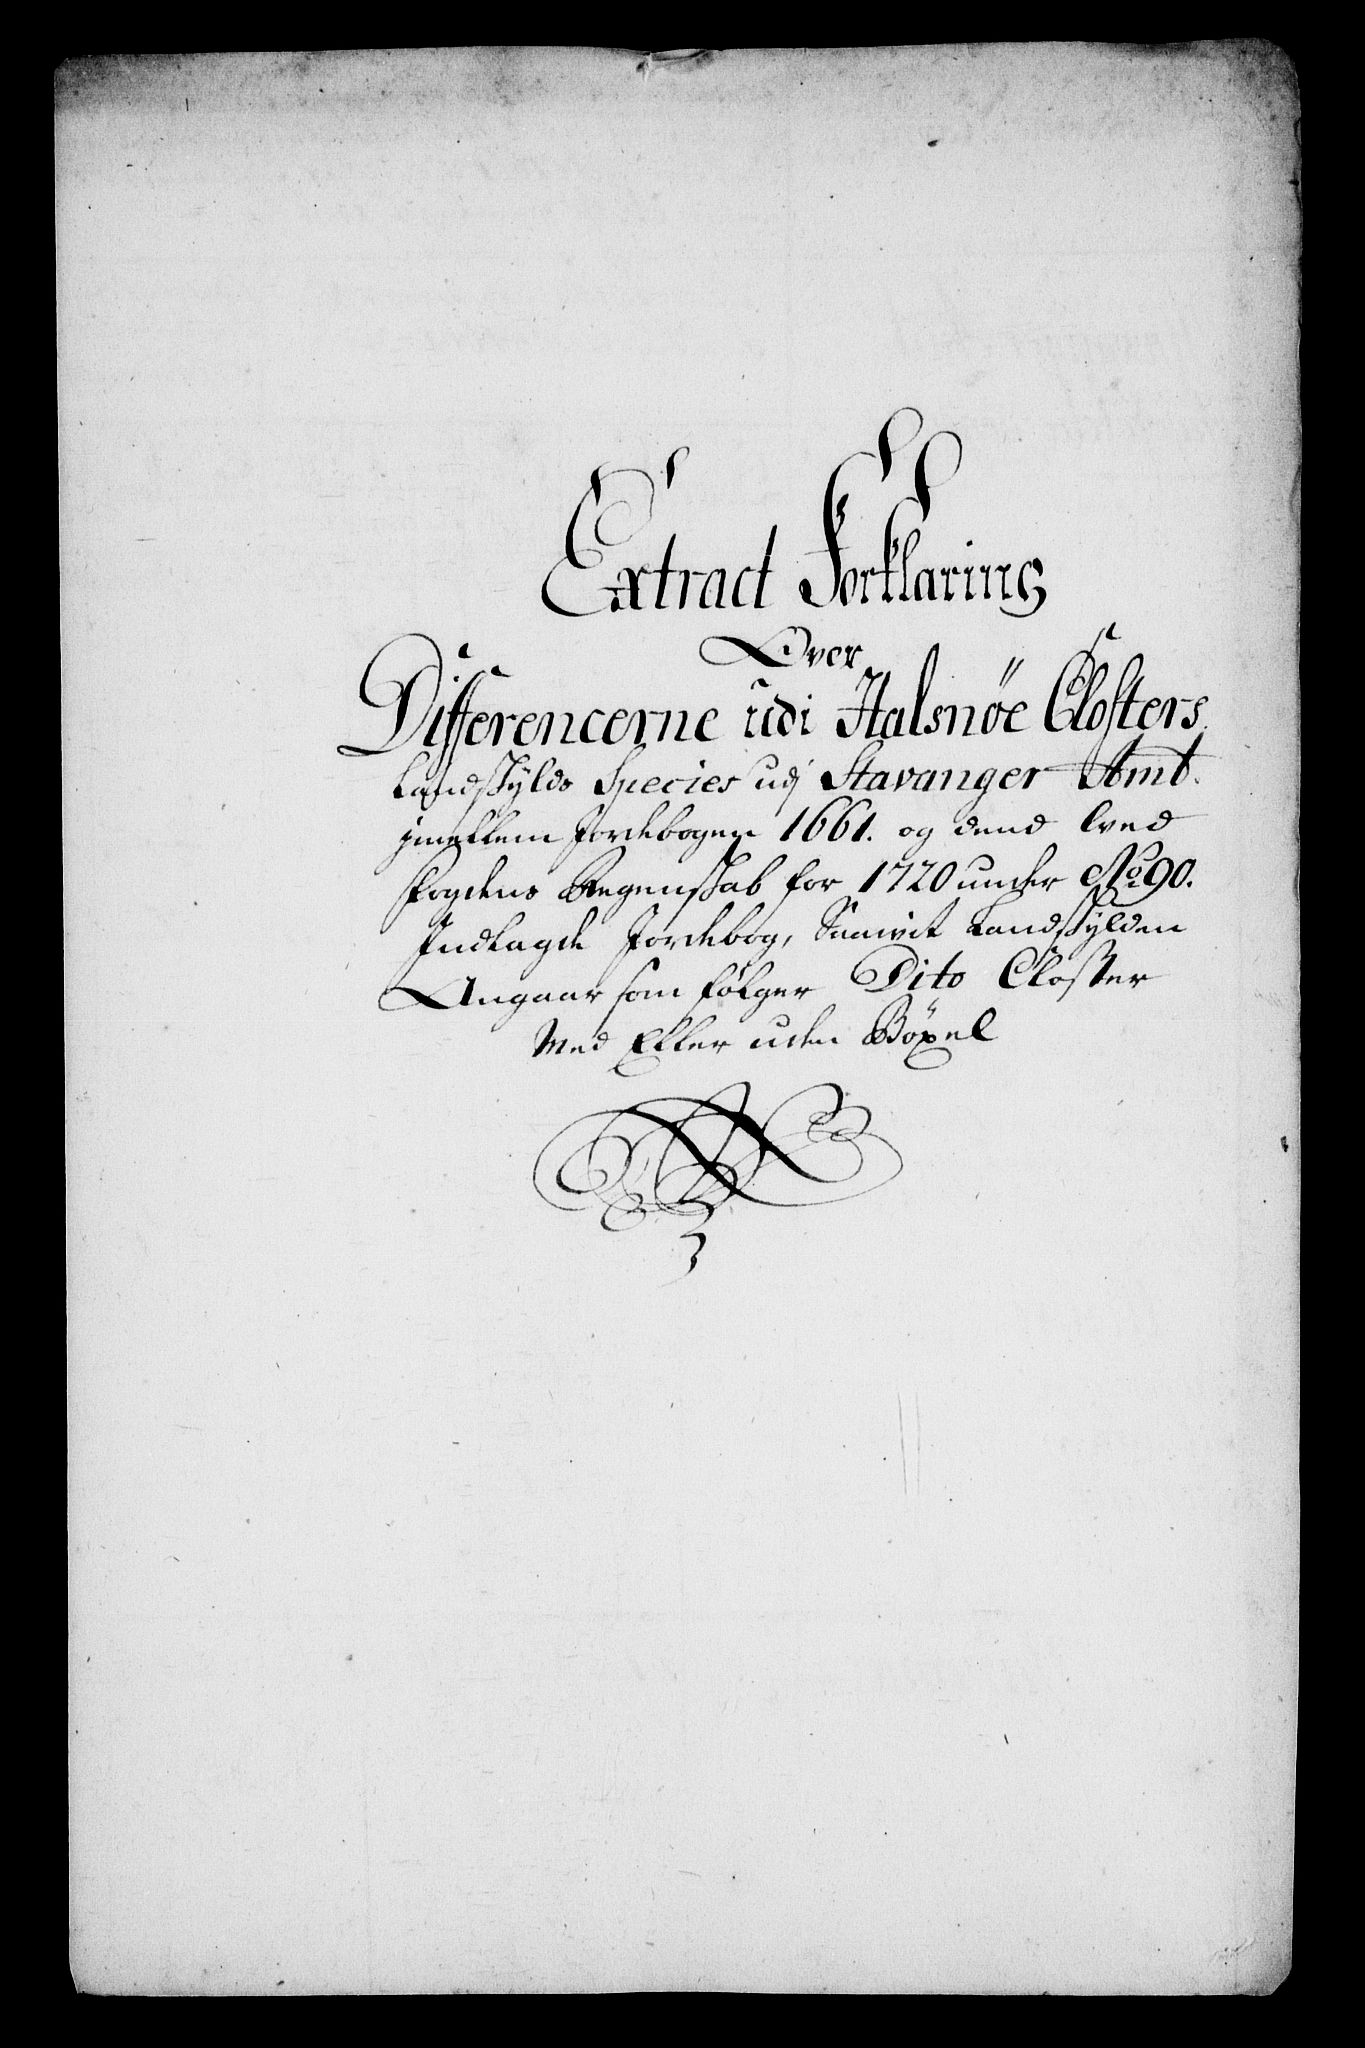 Extract Forklaring
Over
Differencerne udi Halsnöe Closters
Landskylds Species udj Stavanger Amt.
jmellem Jordebogen 1661. og dend wed
Fogdens Regenskab for 1720 under No 90.
Indlagde Jordebog, Saawit Landskylden
Angaar som følger Dito Closter
Med Eller uden Böxel